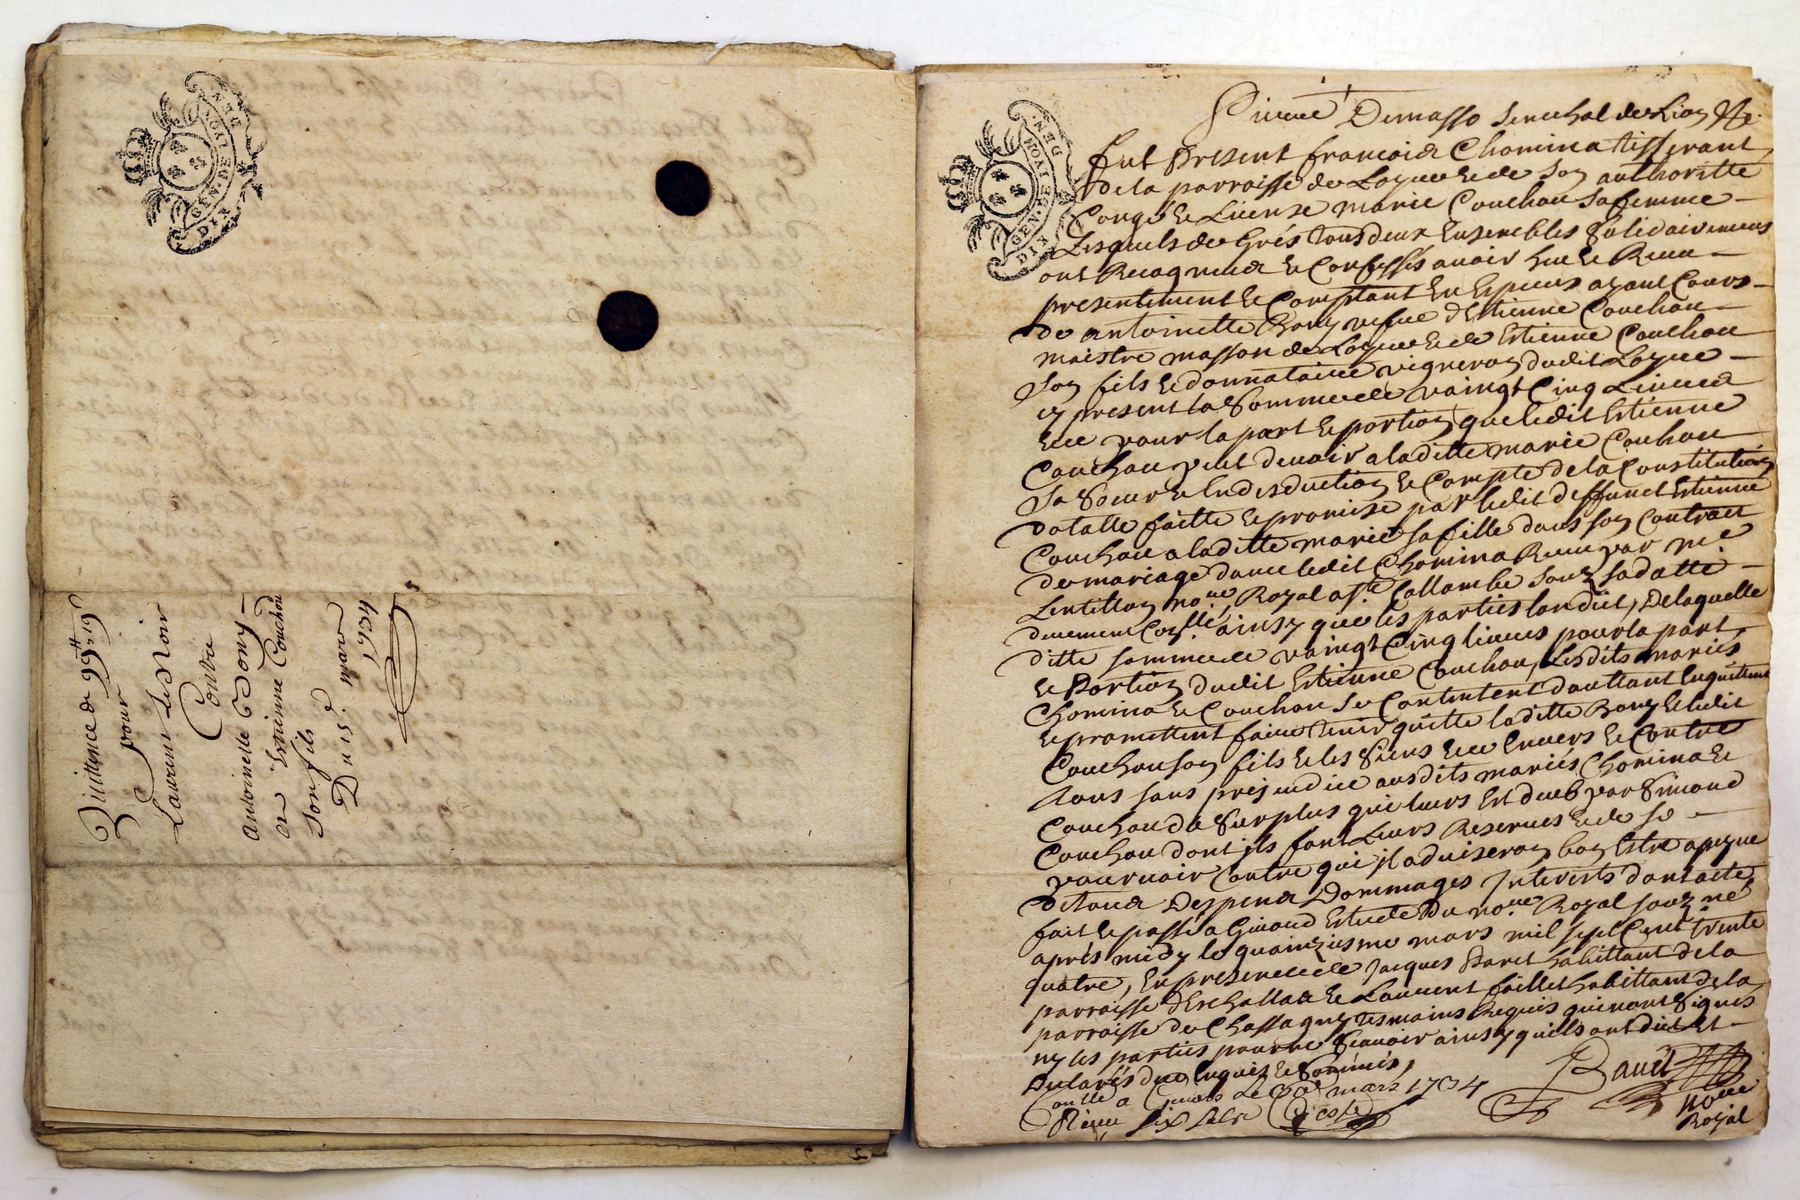 GEN. DE LYON
DIX DEN.
Quittence de 99tt 19s
pour
Laurent Lenoir
Contre
Antoinette Bony
et Estienne Couchou
son fils
Du 15e mars
1734
GEN. DE LYON
DIX DEN.
Pierre Demasso Senechal de Lion &c.
fut present francois Chomina tisserant
de la parroisse de Layee et de son authoritte
Congé et License marie Couchou sa femme
Lesquels de grés tous deux Ensembles solidairement
ont Recogneud et Confessés avoir heu et Receu
presentement et Comptant En Especes ayant Cours
de antoinette Bony vefue d'Estienne Couchou
maistre masson de Layee et de Estienne Couchou
son fils et donnataire vigneron dudit Layee
cy present la Somme de vaingt Cinq Livres
Ece pour la part et portion que ledit Estienne
Couchou peut devoir a laditte marie Couchou
sa soeur et En desduction et Compte de la Constitution
dotalle faitte et promise par ledit deffunct Estienne
Couchou a laditte marie sa fille dans son Contract
de mariage avec ledit Chomina Receu par me
Lentillon nore Royal a ste Collombe souz sa datte
deuement Conllé ainsy que les parties l'ont dit, De laquelle
ditte somme de vaingt Cinq livres pour la part
et Portion dudit Estienne Couchou, Lesdits mariés
Chomina et Couchou se Contentent d'auttant En quittent
et promettent faire tenir quitte laditte Bony et ledit
Couchou son fils et les siens Ece Envers et Contre
tous sans prejudice ausdits mariés Chomina et
Couchou du Surplus qui leurs Est deub par Simond
Couchou dont ils font Leurs Reserves et de se
pourvoir Contre qui jl aduiseront bon Estre a peyne
de tous Despens Dommages Interests dont acte,
fait et passé a Givord Estude du nore Royal souz.né
après midy le quainziesme mars mil sept Cent trente
quatre, En presence de Jacques Baret habittant de la
parroisse d'Eschallas et Laurent faillet habittant de la
parroisse de Chassagny tesmoins Requis qui n'ont Signés
ny les parties pour ne Scavoir ainsy qu'ils ont dit Et
Declarés due Enquis et Sommés,
Conllé a Givors Le mars 1734
Receu six sols Coste
Bauet
nore
Royal